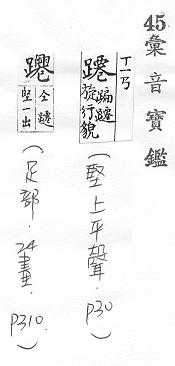 45彙音寶鑑
ㄒㄧㄢ
躚 蹁躚
旋行貌
(堅上平聲.P30)
仝躚
堅一出
(足部.24畫.P310.)